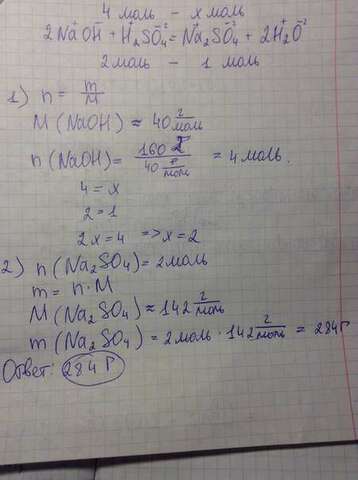 4 моль - х моль
2Na⁺OH⁻ + H₂⁺SO₄⁻² = Na₂⁺SO₄⁻² + 2H₂⁺O⁻²
2 моль - 1 моль
1) n = m/M
M (NaOH) ≈ 40 г/моль
n (NaOH) = 160 г / 40 г/моль = 4 моль.
4 = x
2 = 1
2x = 4 => x = 2
2) n (Na₂SO₄) = 2 моль
m = n · M
M (Na₂SO₄) ≈ 142 г/моль
m (Na₂SO₄) = 2 моль · 142 г/моль = 284 г
Ответ: 284 г